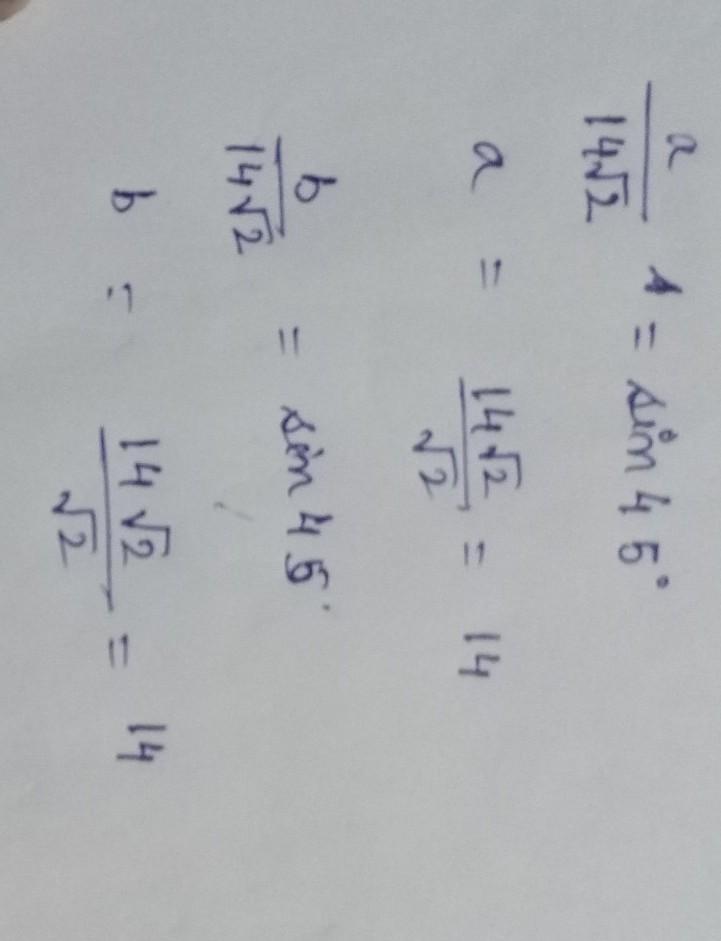 a/14√2 = sin 45°
a = 14√2/√2 = 14
b/14√2 = sin 45°
b = 14√2/√2 = 14